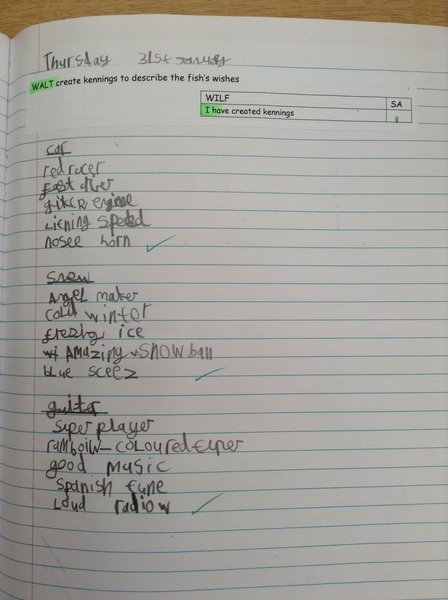 Thursday 31st January
WALT create kennings to describe the fish's wishes
WILF SA
I have created kennings
car
red racer
fast drier
engine
Licning speed
nosee horn
snow
Angel maker
cold winter
ice
AMAZing SNOWball
blue sceez
guitar
super player
coloured
good music
Spanish tune
Loud radiow